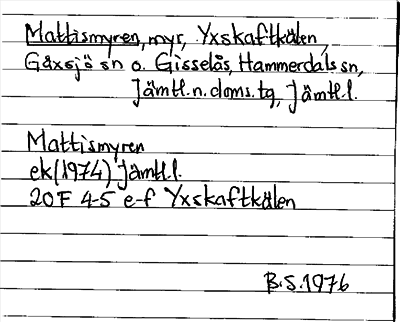 Mattismyren, myr, Yxskaftkälen,
Gåxsjö sn o. Gisselås, Hammerdals sn,
Jämtl.n.doms.tg, Jämtl.l.
Mattismyren
ek(1974) Jämtl.l.
20F 4-5 e-f Yxskaftkälen
B.S.1976